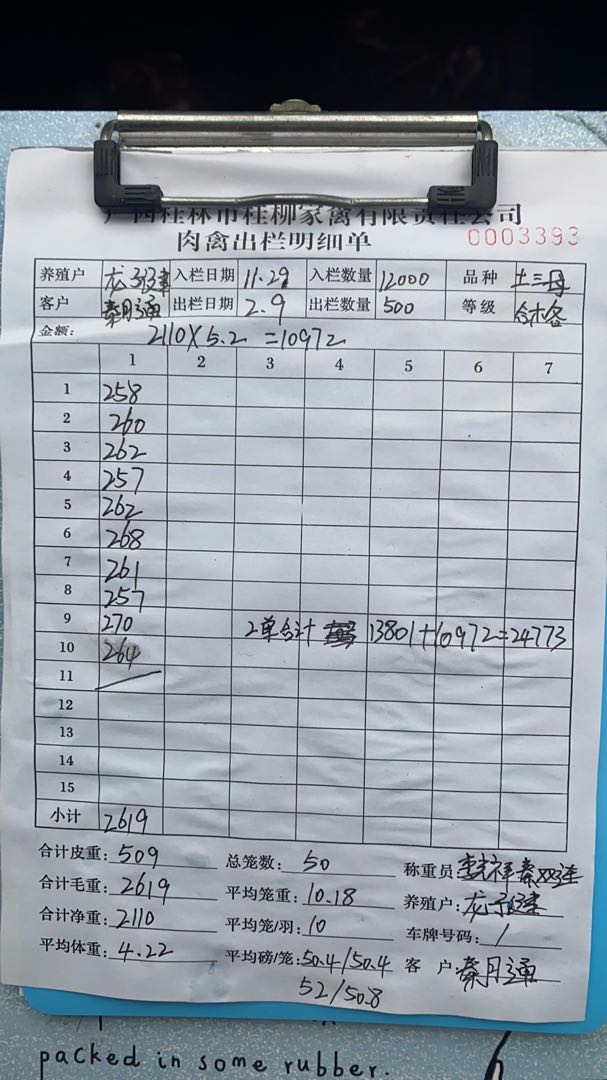 广西桂林市桂柳家禽有限责任公司
肉禽出栏明细单 0003393
养殖户 龙 入栏日期 11.29 入栏数量 12000 品种 土三母
客户 秦月通 出栏日期 2.9 出栏数量 500 等级 合格
金额: 2110X5.2=10972
1 2 3 4 5 6 7
1 258
2 260
3 262
4 257
5 262
6 268
7 261
8 257
9 270 2单合计 13801+10972=24773
10 264
11
12
13
14
15
小计 2619
合计皮重: 509 总笼数: 50 称重员: 李 祥 秦
合计毛重: 2619 平均笼重: 10.18 养殖户: 龙
合计净重: 2110 平均笼/羽: 10 车牌号码: /
平均体重: 4.22 平均磅/笼: 50.4/50.4 客户 秦月通
52/50.8
packed in some rubber.